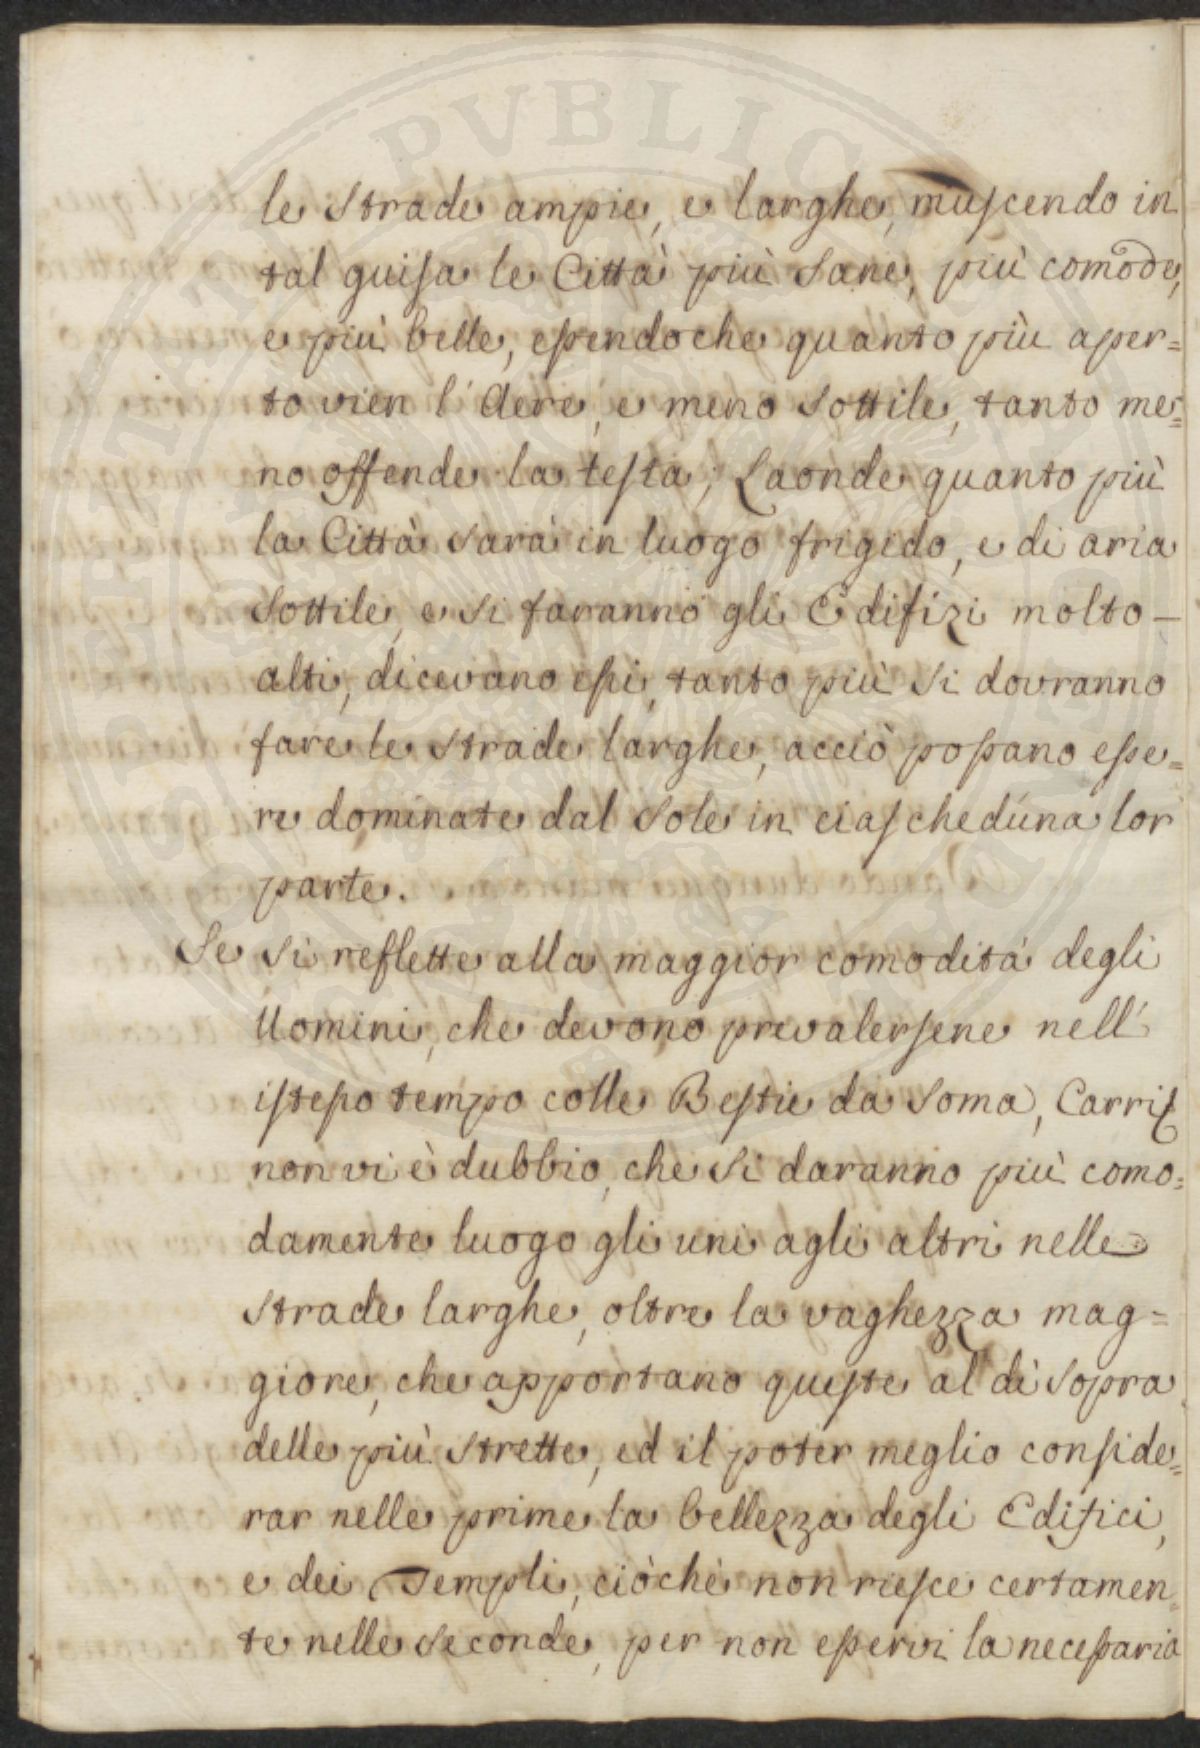 PVBLIC
le Strade ampie, e larghe, riuscendo in
tal guisa le Città più Sane, più comode,
e più belle, essendoche quanto più aper=
to vien l'Aere, e meno Sottile, tanto me=
no offende la testa; Laonde quanto più
la Città sarà in luogo frigido, e di aria
Sottile, e si faranno gli Edifizi molto —
alti, dicevano essi, tanto più si dovranno
fare le Strade larghe, acciò possano esse=
re dominate dal Sole in ciascheduna lor
parte.
Se si reflette alla maggior comodità degli
Uomini, che devono prevalersene nell'
istesso tempo colle Bestie da Soma, Carri
non vi è dubbio, che si daranno più como=
damente luogo gli uni agli altri nelle
Strade larghe, oltre la vaghezza mag=
giore, che apportano queste al di sopra
delle più Strette, ed il poter meglio conside=
rar nelle prime la bellezza degli Edifici,
e dei Templi, ciòchè non riesce certamen=
te nelle Seconde, per non esservi la necessaria